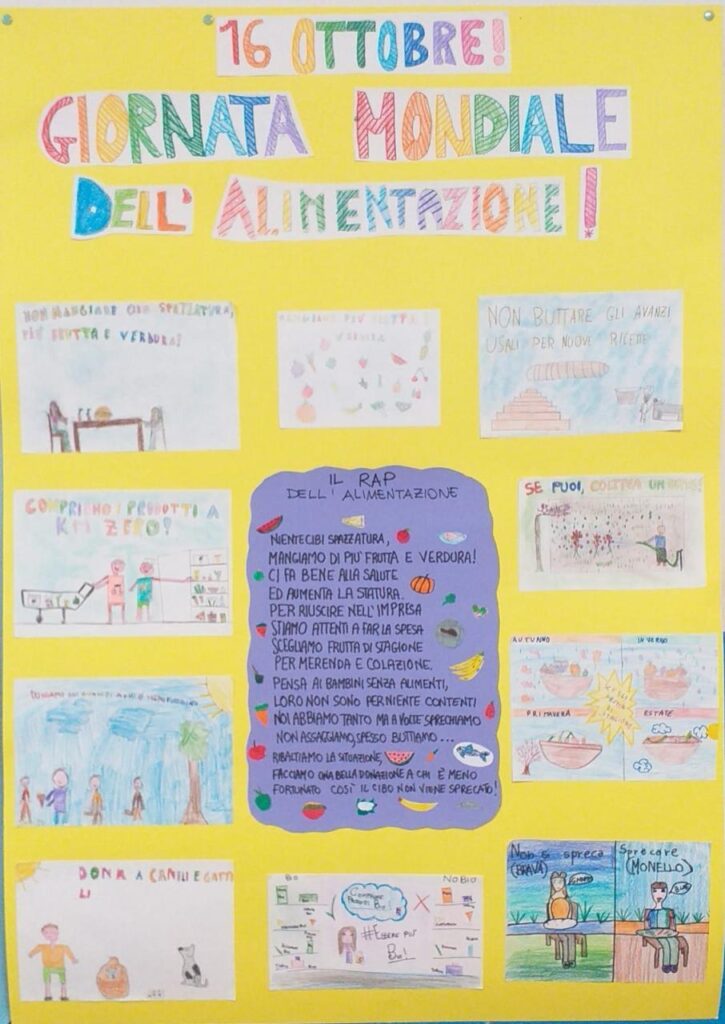 16 OTTOBRE!
GIORNATA MONDIALE
DELL' ALIMENTAZIONE!
NON MANGIARE CIBO SPAZZATURA,
PIÙ FRUTTA E VERDURA!
MANGIARE PIÙ FRUTTA E
VERDURA
NON BUTTARE GLI AVANZI
USALI PER NUOVE RICETTE
COMPRIAMO I PRODOTTI A
KM ZERO!
IL RAP
DELL'ALIMENTAZIONE
NIENTE CIBI SPAZZATURA,
MANGIAMO DI PIU' FRUTTA E VERDURA!
CI FA BENE ALLA SALUTE
ED AUMENTA LA STATURA.
PER RIUSCIRE NELL'IMPRESA
STIAMO ATTENTI A FAR LA SPESA
SCEGLIAMO FRUTTA DI STAGIONE
PER MERENDA E COLAZIONE.
PENSA AI BAMBINI SENZA ALIMENTI,
LORO NON SONO PER NIENTE CONTENTI
NOI ABBIAMO TANTO MA A VOLTE SPRECHIAMO
NON ASSAGGIAMO, SPESSO BUTTIAMO...
RIBALTIAMO LA SITUAZIONE,
FACCIAMO UNA BELLA DONAZIONE A CHI È MENO
FORTUNATO COSÌ IL CIBO NON VIENE SPRECATO!
SE PUOI, COLTIVA UN
AUTUNNO
INVERNO
PRIMAVERA
ESTATE
DONIAMO GLI AVANZI A
DONA A CANILI E GATTI
LI
BIO
NO BIO
#ESSERE PIÙ
Bio!
Non si spreca
(BRAVA)
Sprecare
(MONELLO)